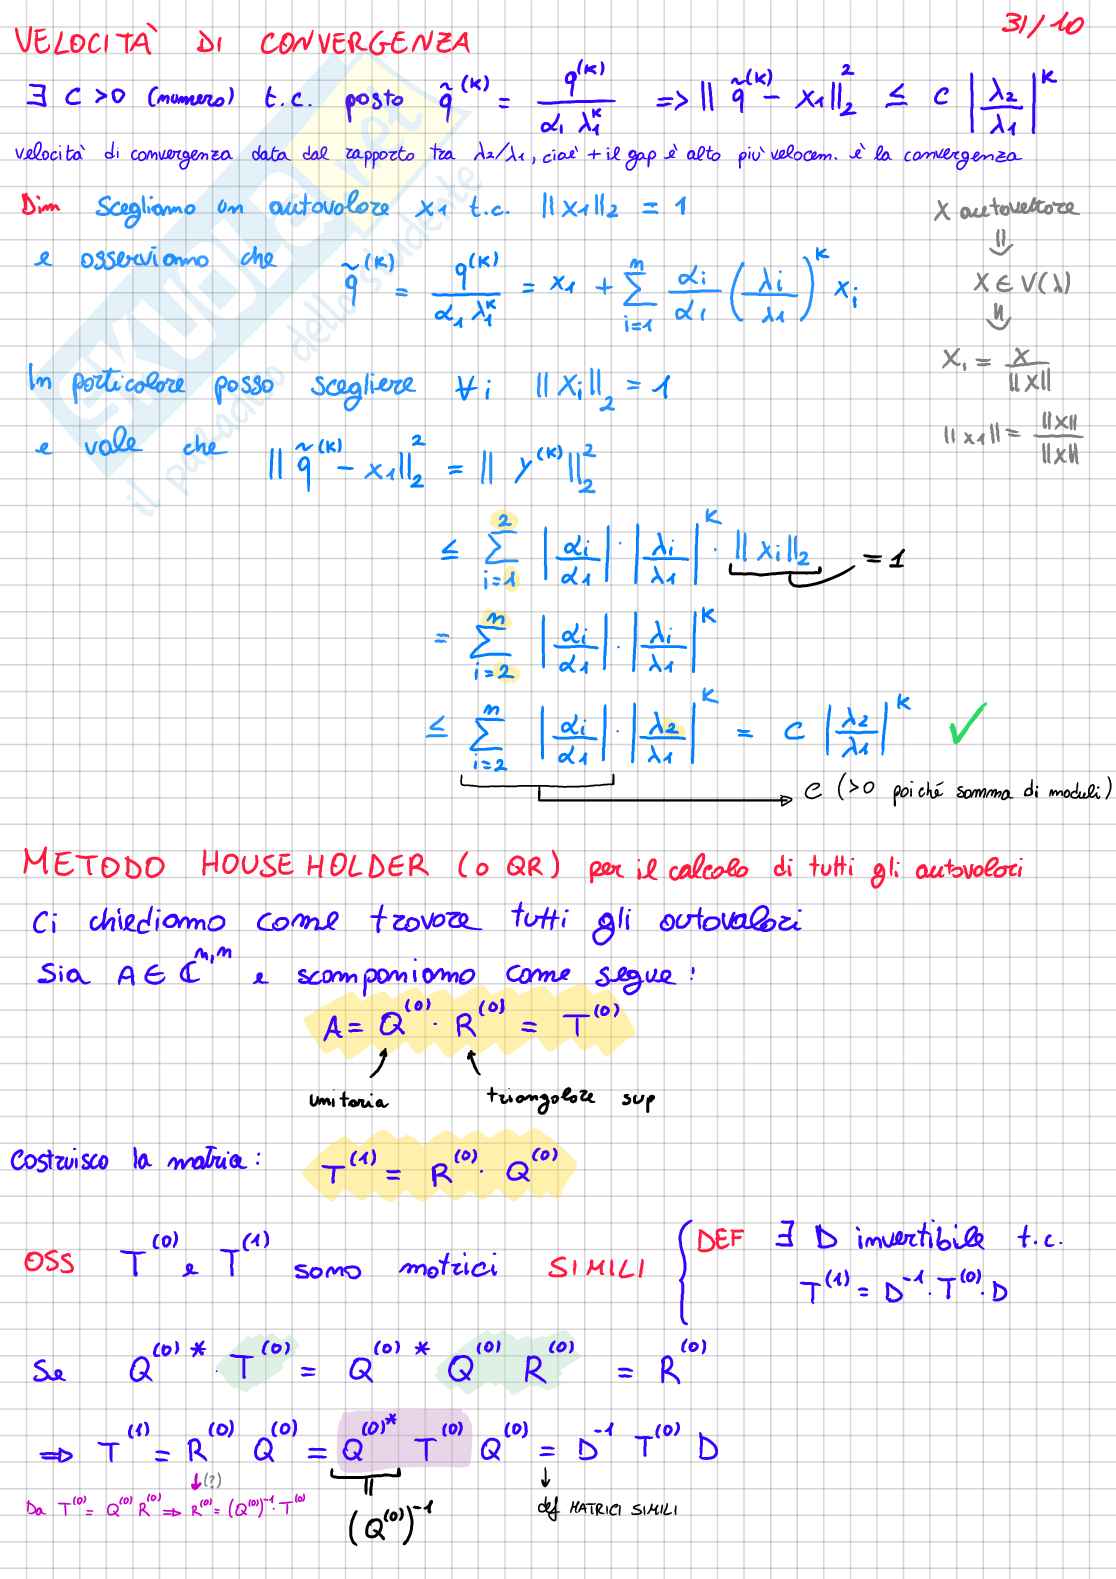 31/10
VELOCITÀ DI CONVERGENZA
∃ C >0 (numero) t.c. posto q̃^(K) = q^(K) / (α₁ λ₁^K) => || q̃^(K) - x₁ ||₂² ≤ C |λ₂/λ₁|^K
velocità di convergenza data dal rapporto tra λ₂/λ₁, cioè + il gap è alto più velocem. è la convergenza
Dim Scegliamo un autovalore x₁ t.c. ||x₁||₂ = 1
e osserviamo che q̃^(K) = q^(K) / (α₁ λ₁^K) = x₁ + ∑_{i=1}^{n} αi/α₁ (λi/λ₁)^K xi
X autovettore
⇓
X ∈ V(λ)
⇓
X₁ = X / ||X||
||x₁|| = ||X|| / ||X||
In particolare posso scegliere ∀i ||Xi||₂ = 1
e vale che || q̃^(K) - x₁ ||₂² = || y^(K) ||₂²
≤ ∑_{i=1}^{2} |αi/α₁| · |λi/λ₁|^K · ||xi||₂ = 1
= ∑_{i=2}^{n} |αi/α₁| · |λi/λ₁|^K
≤ ∑_{i=2}^{n} |αi/α₁| · |λ₂/λ₁|^K = C |λ₂/λ₁|^K ✓
C (>0 poiché somma di moduli)
METODO HOUSEHOLDER (o QR) per il calcolo di tutti gli autovalori
Ci chiediamo come trovare tutti gli autovalori
Sia A ∈ ℂ^{n,n} e scomponiamo come segue:
A = Q^(0) · R^(0) = T^(0)
unitaria triangolare sup
Costruisco la matria: T^(1) = R^(0) · Q^(0)
OSS T^(0) e T^(1) sono matrici SIMILI { DEF ∃ D invertibile t.c.
T^(1) = D^-1 · T^(0) · D
Se Q^(0)* · T^(0) = Q^(0)* Q^(0) R^(0) = R^(0)
⇒ T^(1) = R^(0) Q^(0) = Q^(0)* T^(0) Q^(0) = D^-1 T^(0) D
↓(?)
Da T^(0) = Q^(0) R^(0) ⇒ R^(0) = (Q^(0))^-1 · T^(0)
(Q^(0))^-1
def MATRICI SIMILI
SKUOLA.net
il paradiso dello studente